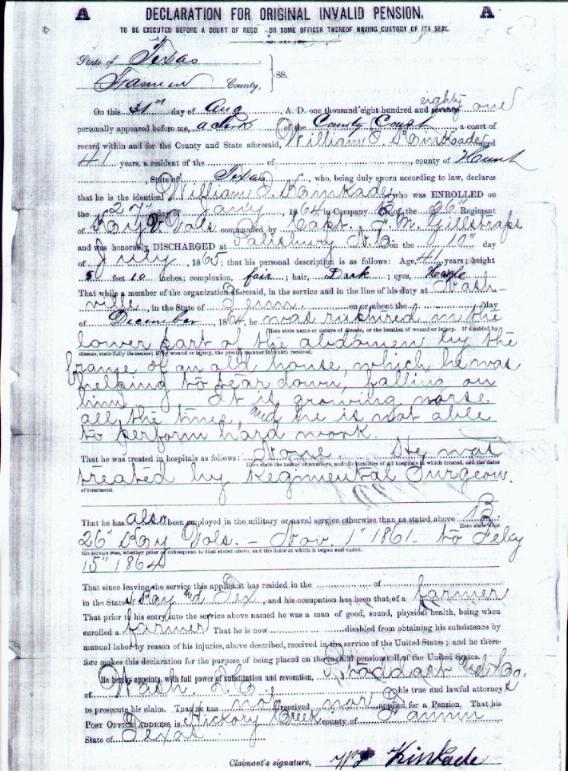 A DECLARATION FOR ORIGINAL INVALID PENSION. A
TO BE EXECUTED BEFORE A COURT OF RECO OR SOME OFFICER THEREOF HAVING CUSTODY OF ITS SEAL.
State of Texas
Fannin County, } SS.
On this 31st day of Aug, A. D. one thousand eight hundred and eighty one
personally appeared before me, a clerk of the County Court, a court of
record within and for the County and State aforesaid, William J. Kinkade aged
41 years, a resident of the of , county of Hunt
State of Texas, who, being duly sworn according to law, declares
that he is the identical William J. Kinkade who was ENROLLED on
the 27" of , 1864 in Company of the 26" Regiment
of Ky Vols commanded by Capt. Gillstraps
and was honorably DISCHARGED at Salisbury N.C. on the 10" day
of July, 1865; that his personal description is as follows: Age, 41 years; height
5 feet 10 inches; complexion, fair; hair, Dark; eyes,
That while a member of the organization aforesaid, in the service and in the line of his duty at Nash
ville, in the State of Tenn. on or about the day
of December, 1864, he was ruptured in the
lower part of the abdomen by the
frame of an old house, which he was
helping to tear down, falling on
him. It is growing worse
all the time, and he is not able
to perform hard work.
That he was treated in hospitals as follows: None. He was
treated by Regimental Surgeon.
That he has also been employed in the military or naval service otherwise than as stated above
26" Ky Vols. - Nov. 1" 1861 - to Feby
15" 1864
That since leaving the service this applicant has resided in the of
in the State of Ky and Tex, and his occupation has been that of a farmer
That prior to his entry into the service above named he was a man of good, sound, physical health, being when
enrolled a farmer That he is now disabled from obtaining his subsistence by
manual labor by reason of his injuries, above described, received in the service of the United States; and he there-
fore makes this declaration for the purpose of being placed on the invalid pension roll of the United States.
He hereby appoints, with full power of substitution and revocation, Stoddart & Co.
of Wash D.C. his true and lawful attorney s
to prosecute his claim. That he has not received nor applied for a Pension. That his
POST OFFICE ADDRESS is Hickory Creek county of Fannin
State of Texas
Claimant's signature, Wm J Kinkade